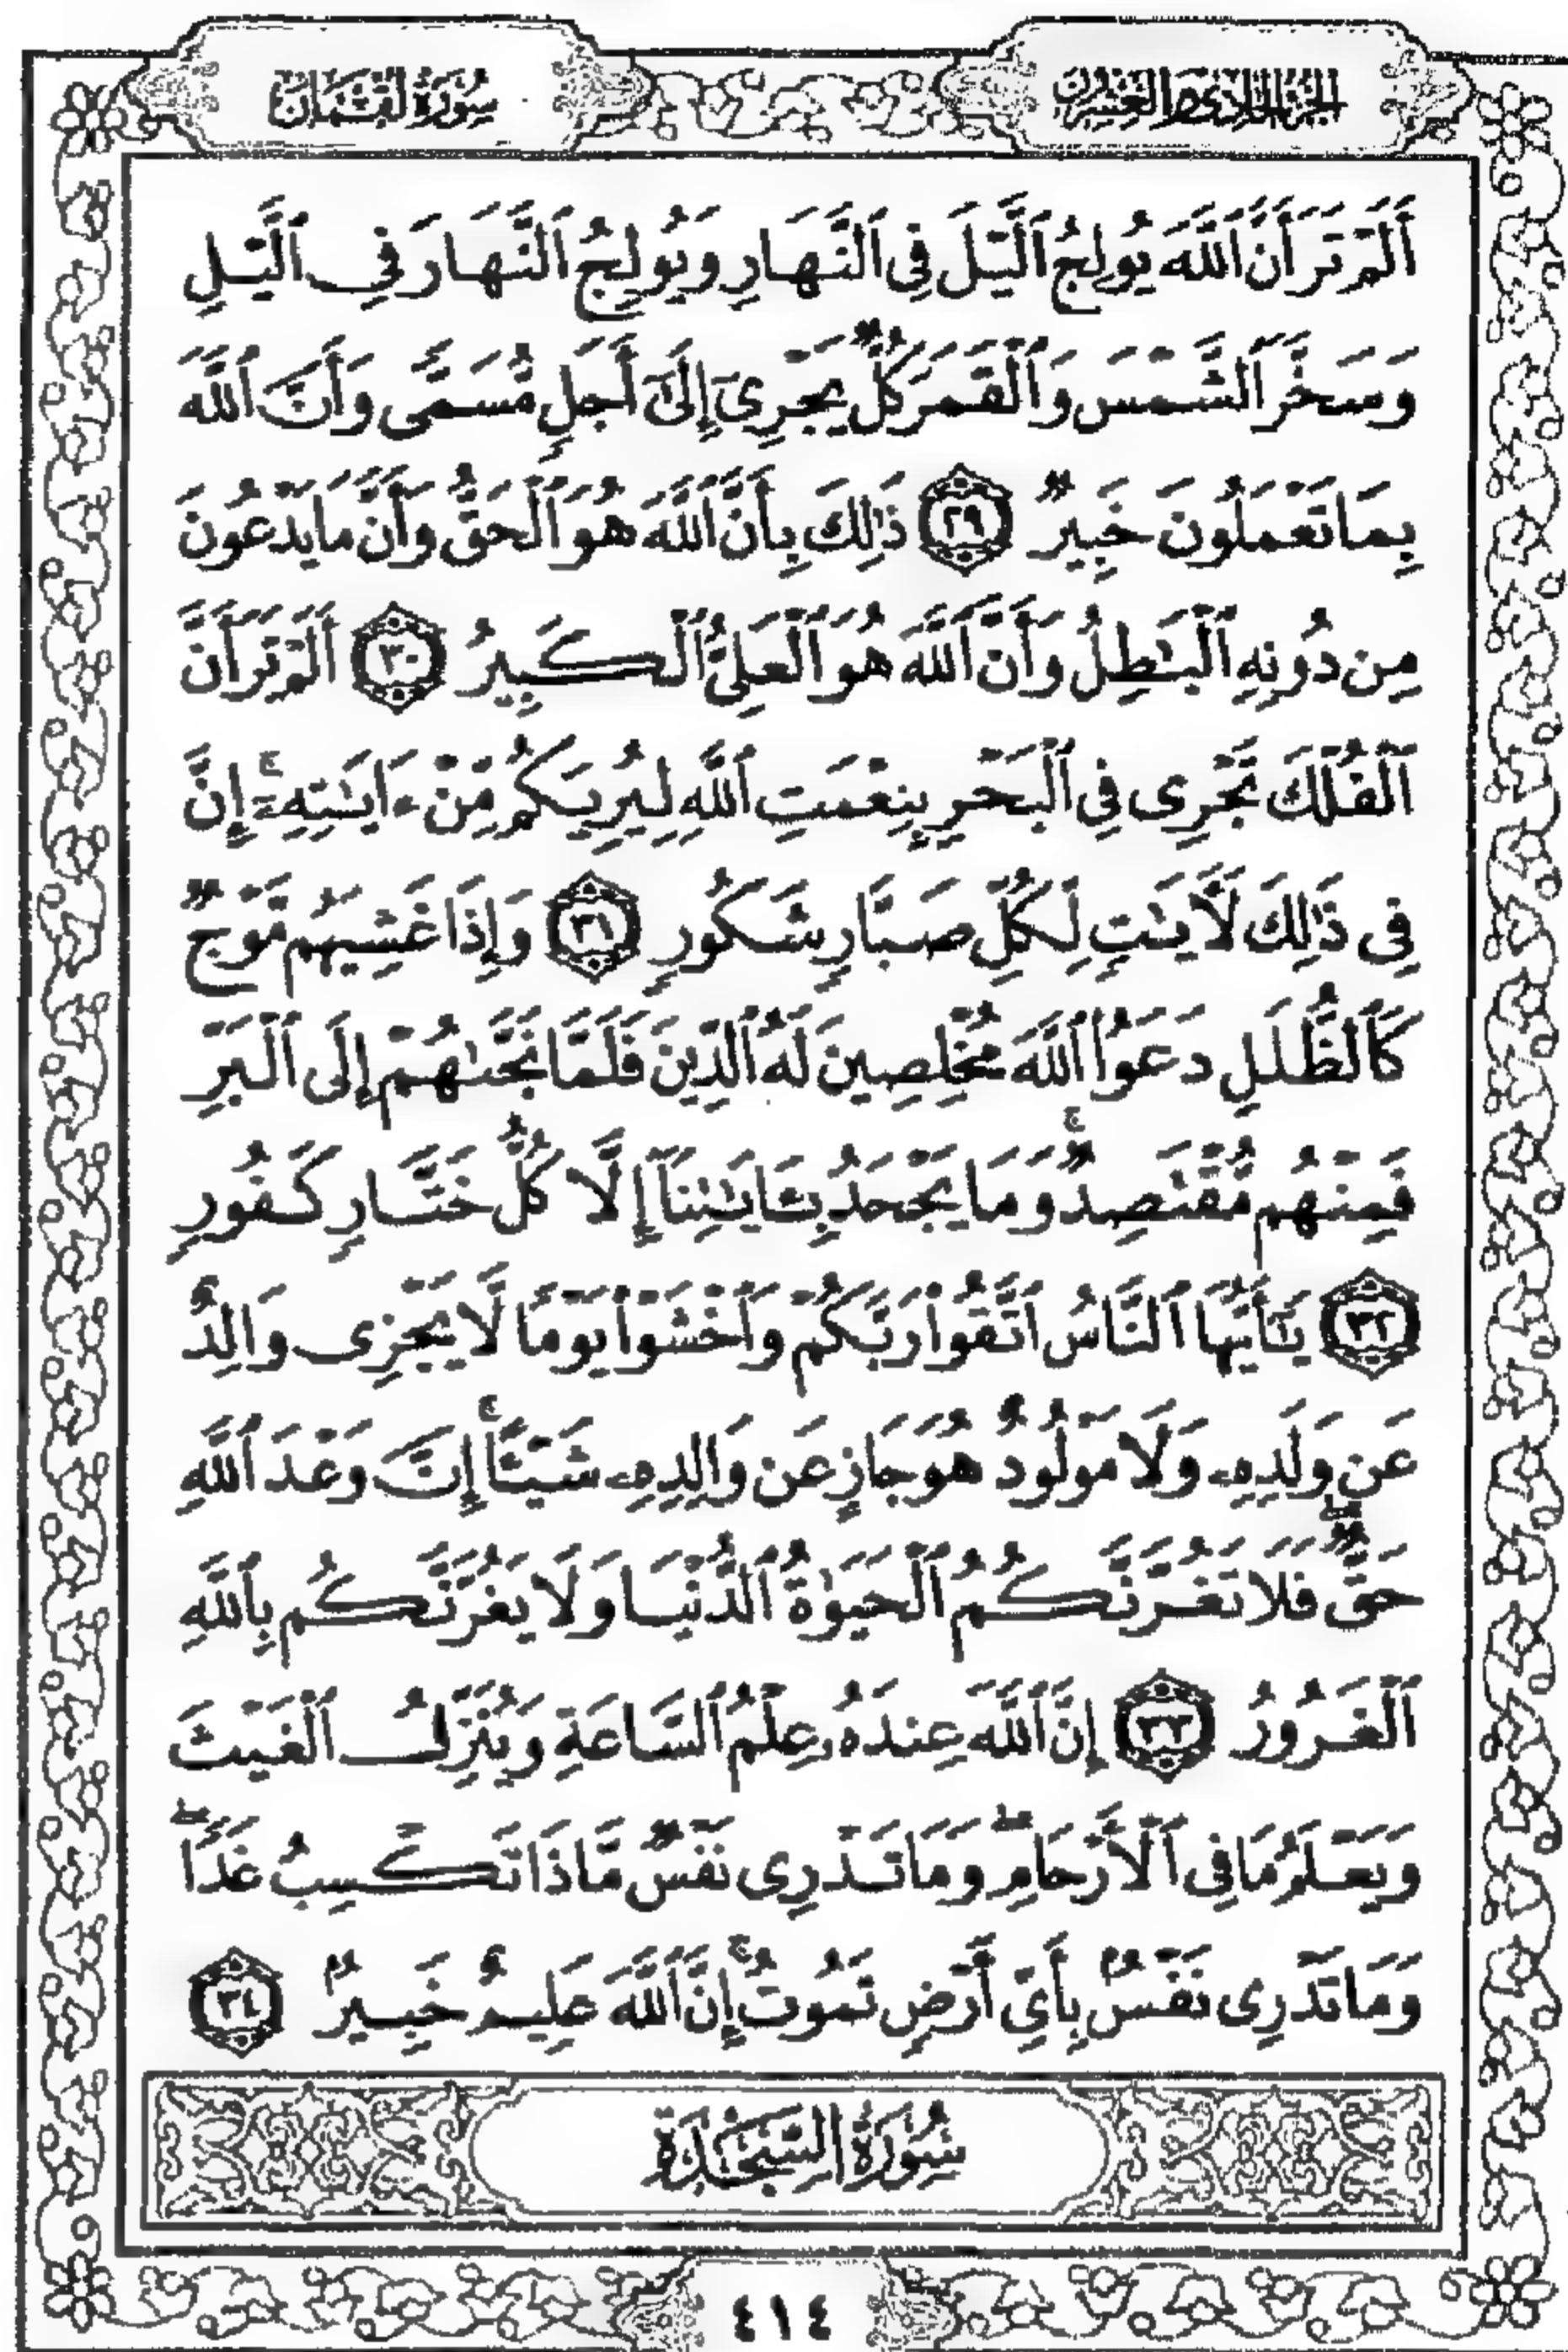 الجزء الحادي والعشرون
سُورَةُ لُقْمَان
أَلَمْ تَرَ أَنَّ ٱللَّهَ يُولِجُ ٱلَّيْلَ فِى ٱلنَّهَارِ وَيُولِجُ ٱلنَّهَارَ فِى ٱلَّيْلِ
وَسَخَّرَ ٱلشَّمْسَ وَٱلْقَمَرَ كُلٌّ يَجْرِىٓ إِلَىٰٓ أَجَلٍ مُّسَمًّى وَأَنَّ ٱللَّهَ
بِمَا تَعْمَلُونَ خَبِيرٌ ٢٩ ذَٰلِكَ بِأَنَّ ٱللَّهَ هُوَ ٱلْحَقُّ وَأَنَّ مَا يَدْعُونَ
مِن دُونِهِ ٱلْبَٰطِلُ وَأَنَّ ٱللَّهَ هُوَ ٱلْعَلِىُّ ٱلْكَبِيرُ ٣٠ أَلَمْ تَرَ أَنَّ
ٱلْفُلْكَ تَجْرِى فِى ٱلْبَحْرِ بِنِعْمَتِ ٱللَّهِ لِيُرِيَكُم مِّنْ ءَايَٰتِهِۦٓ ۚ إِنَّ
فِى ذَٰلِكَ لَأٓيَٰتٍ لِّكُلِّ صَبَّارٍ شَكُورٍ ٣١ وَإِذَا غَشِيَهُم مَّوْجٌ
كَٱلظُّلَلِ دَعَوُا۟ ٱللَّهَ مُخْلِصِينَ لَهُ ٱلدِّينَ فَلَمَّا نَجَّىٰهُمْ إِلَى ٱلْبَرِّ
فَمِنْهُم مُّقْتَصِدٌ ۚ وَمَا يَجْحَدُ بِـَٔايَٰتِنَآ إِلَّا كُلُّ خَتَّارٍ كَفُورٍ
٣٢ يَٰٓأَيُّهَا ٱلنَّاسُ ٱتَّقُوا۟ رَبَّكُمْ وَٱخْشَوْا۟ يَوْمًا لَّا يَجْزِى وَالِدٌ
عَن وَلَدِهِۦ وَلَا مَوْلُودٌ هُوَ جَازٍ عَن وَالِدِهِۦ شَيْـًٔا ۚ إِنَّ وَعْدَ ٱللَّهِ
حَقٌّ ۖ فَلَا تَغُرَّنَّكُمُ ٱلْحَيَوٰةُ ٱلدُّنْيَا وَلَا يَغُرَّنَّكُم بِٱللَّهِ
ٱلْغَرُورُ ٣٣ إِنَّ ٱللَّهَ عِندَهُۥ عِلْمُ ٱلسَّاعَةِ وَيُنَزِّلُ ٱلْغَيْثَ
وَيَعْلَمُ مَا فِى ٱلْأَرْحَامِ ۖ وَمَا تَدْرِى نَفْسٌ مَّاذَا تَكْسِبُ غَدًا ۖ
وَمَا تَدْرِى نَفْسٌۢ بِأَىِّ أَرْضٍ تَمُوتُ ۚ إِنَّ ٱللَّهَ عَلِيمٌ خَبِيرٌۢ ٣٤
سُورَةُ السَّجْدَةِ
٤١٤